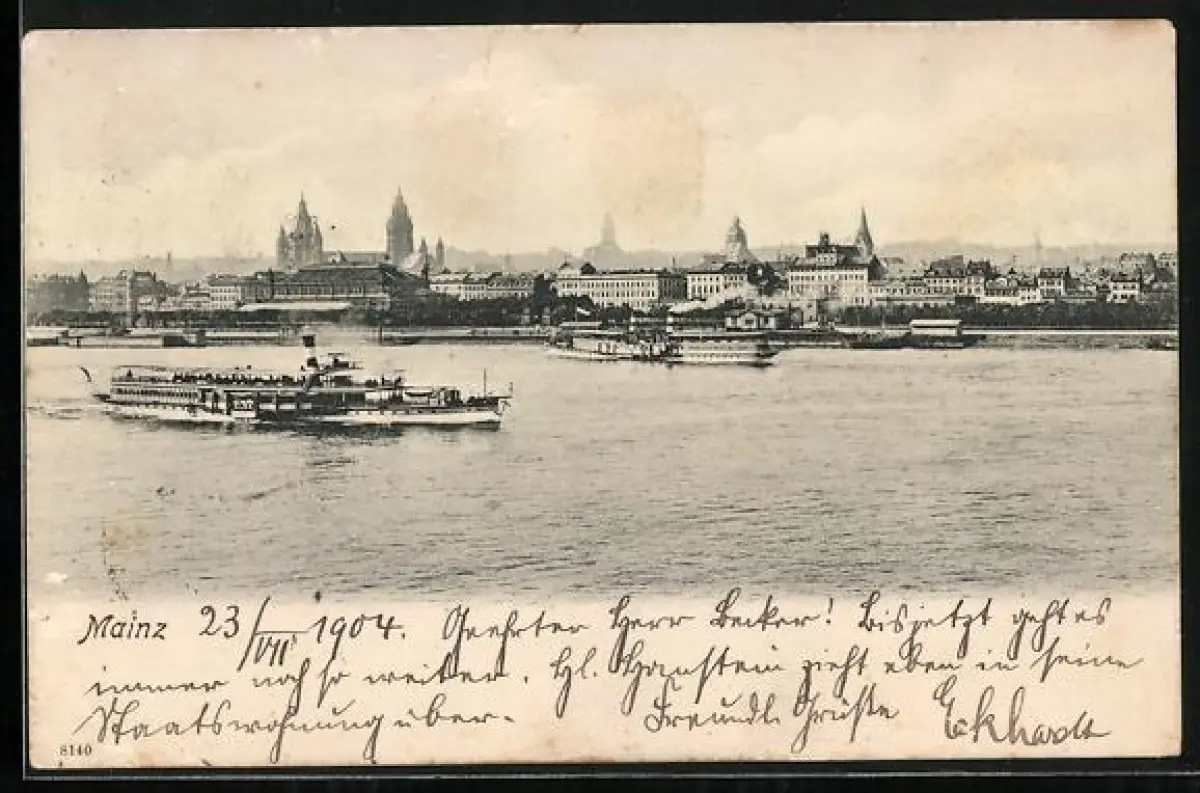 Mainz 23/VII 1904. Geehrter Herr Becker! Bis jetzt geht es
immer noch so weiter. Hl. Hanstein zieht eben in seine
Staatswohnung über. Freundl. Grüße Eckhardt
8140